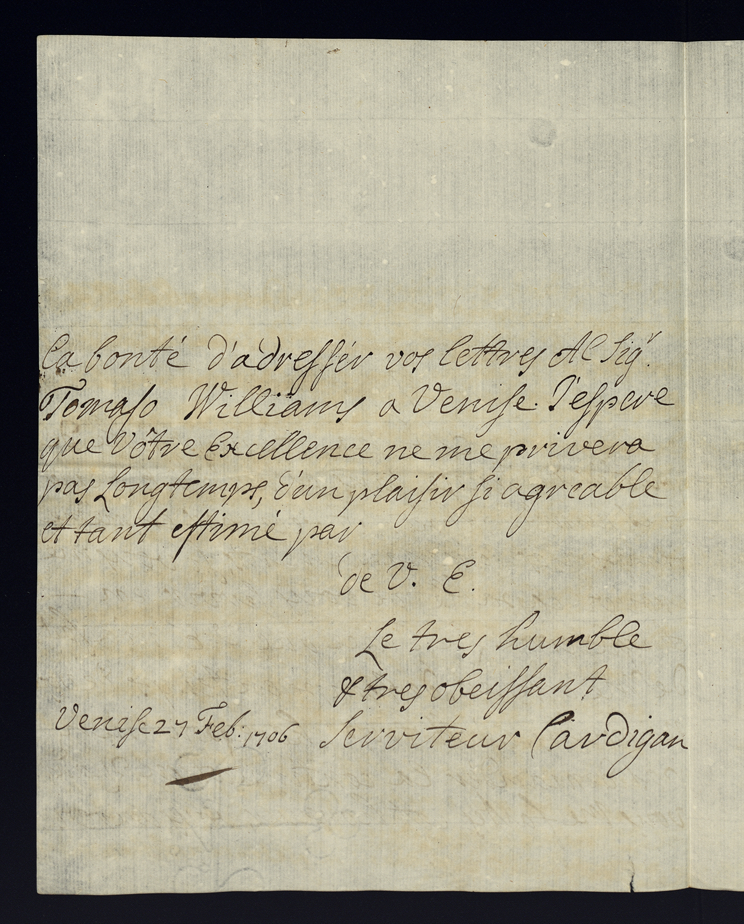 la bonté d'adresser vos lettres Al Sigr.
Tomaso Williams a Venise. J'espere
que Vôtre Excellence ne me privera
pas Longtemps, d'un plaisir si agreable
et tant estimé par
de V. E.
Le tres humble
& tres obeissant
Venise 27 Feb: 1706 Serviteur Cardigan